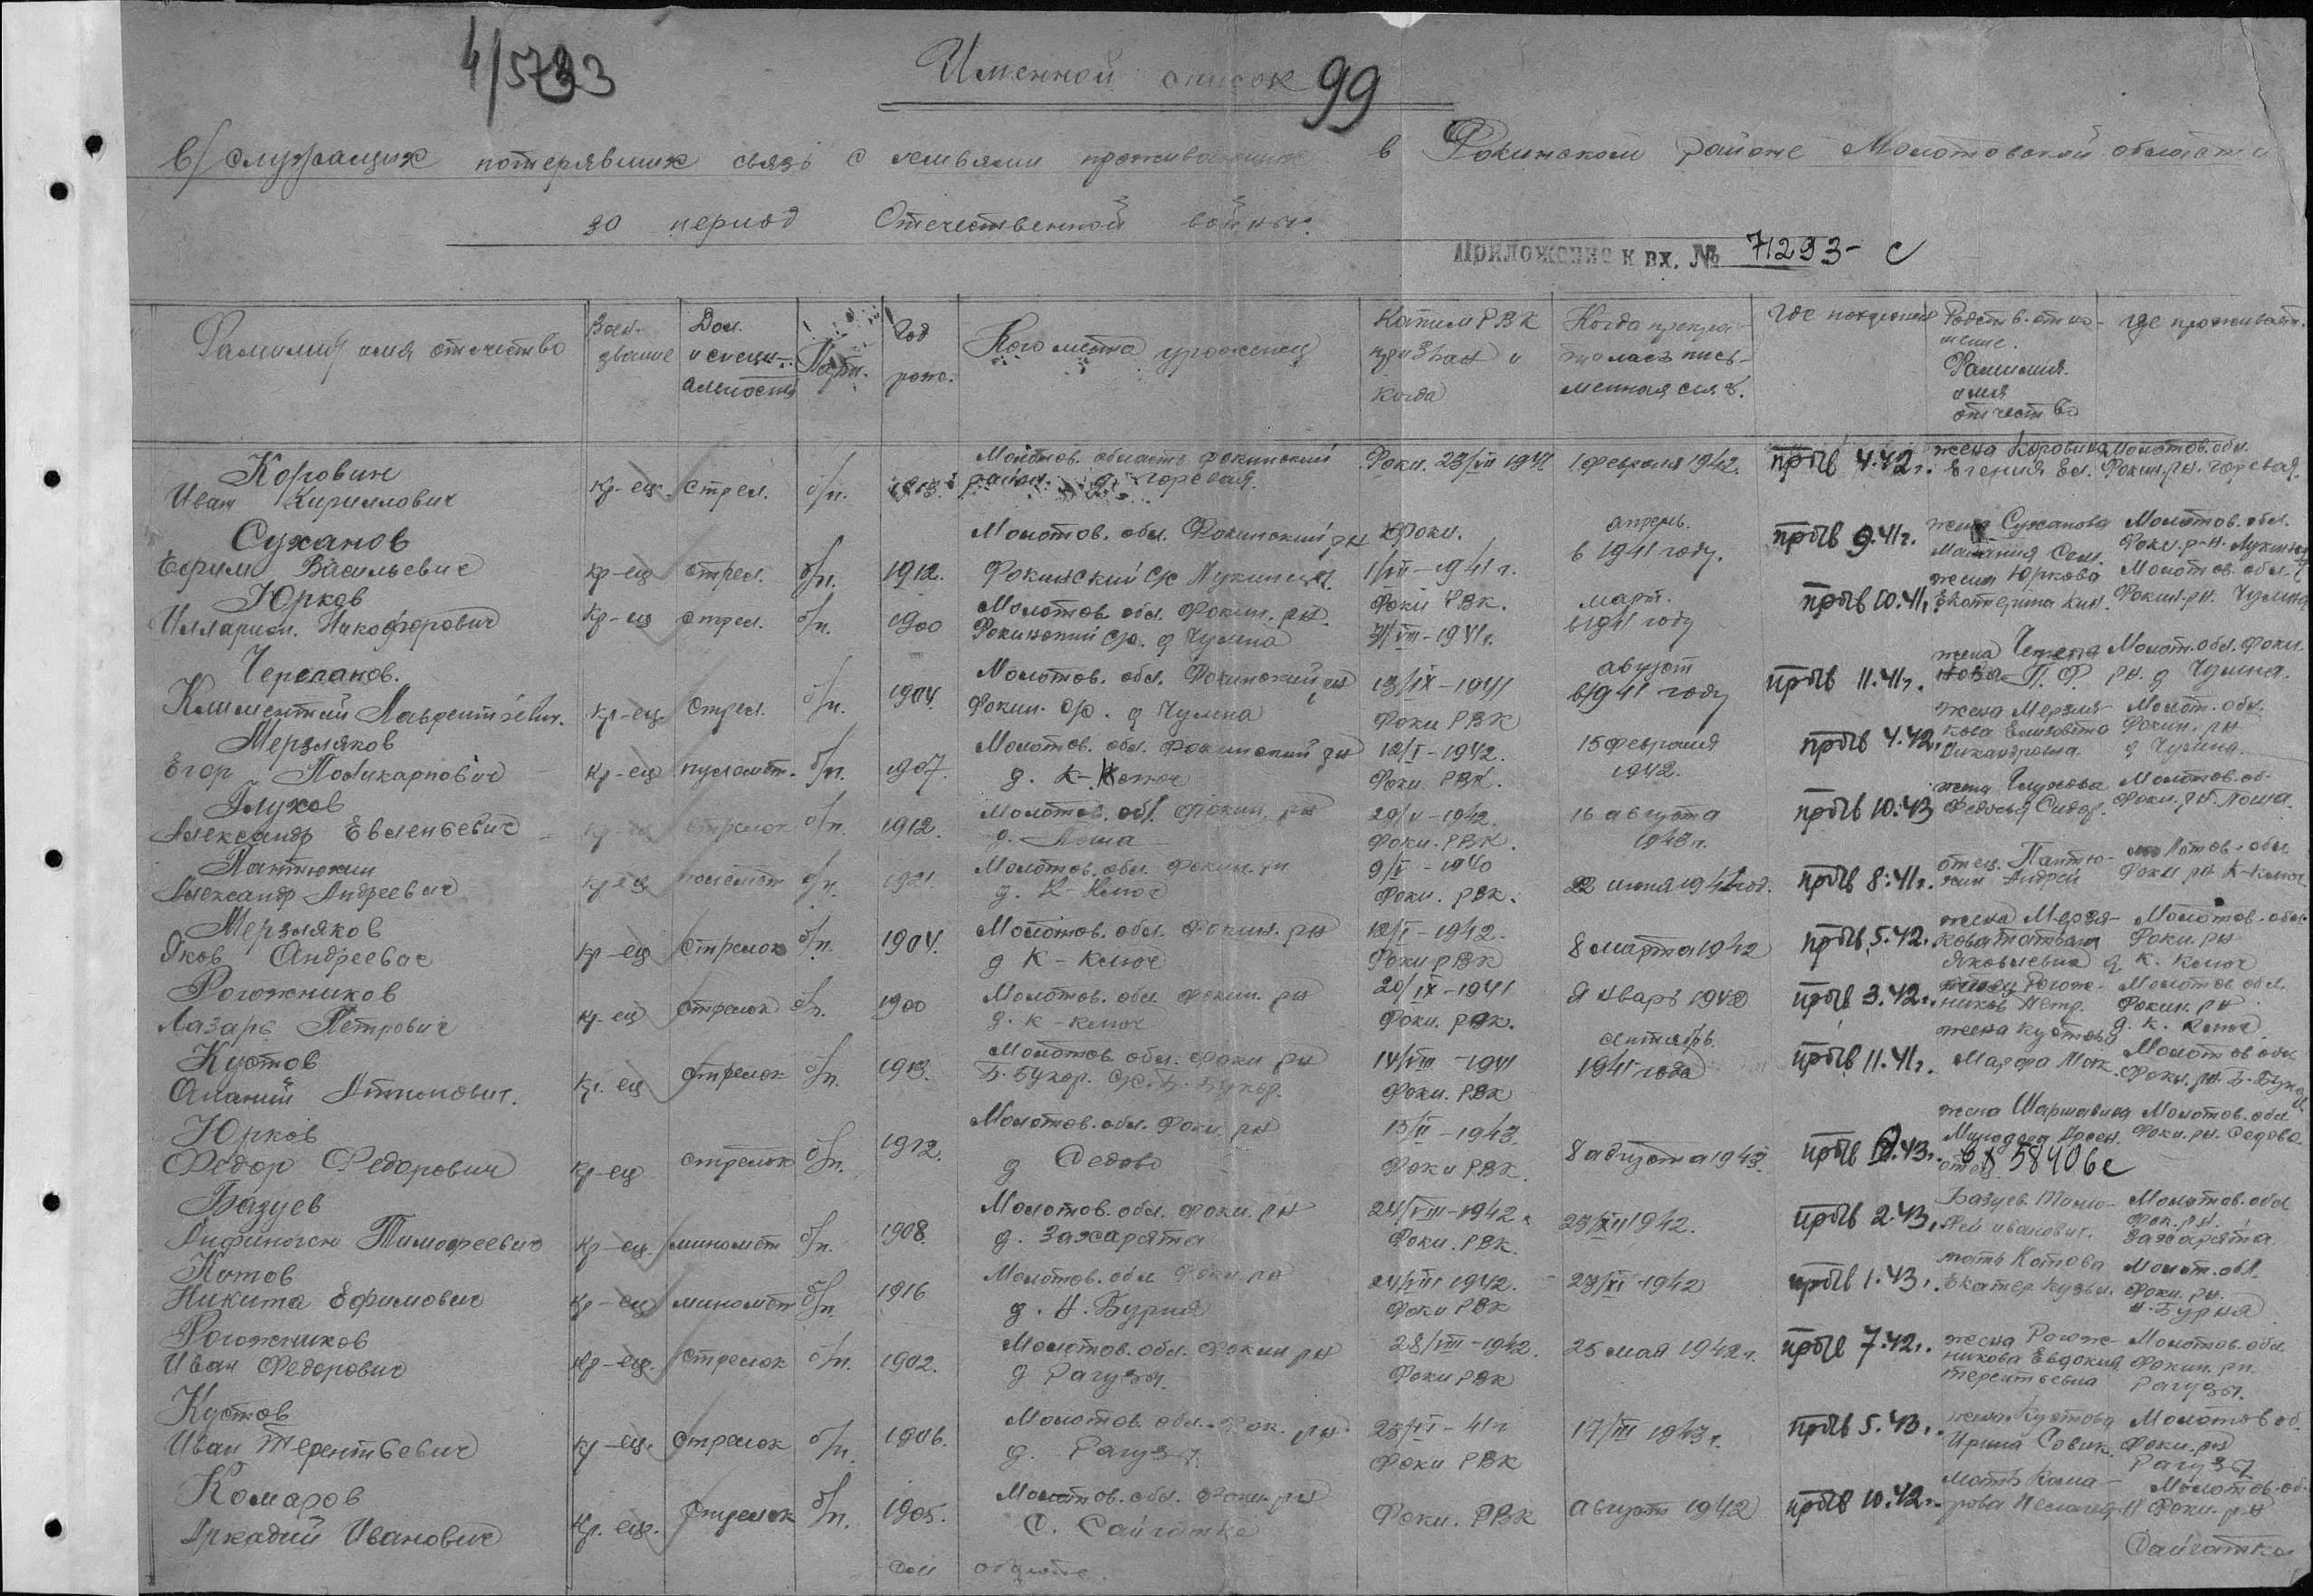 4/5733
Именной список 99
в/служащих потерявших связь с семьями проживающих в Фокинском районе Молотовской области
за период Отечественной войны.
Приложение к вх. № 71293-с
Фамилия имя отчество | Воен. звание | Дол. и специальность | Парт. | Год рож. | Кого места уроженец | Каким РВК призван и когда | Когда прекратилась письменная связ. | Где похоронен | Родств. отношение. Фамилия имя отчество | где проживает.
Коровин Иван Кириллович | кр-ец. | стрел. | б/п. | 1913. | Молотов. область Фокинский район. д. Горевая. | Фоки. 23/VII 1941 | 1 февраля 1942. | проп в 4.42г. | жена Коровина Евгения Ев. | Молотов. обл. Фокин. рн. Горевая.
Суханов Ефрим Васильевич | кр-ец | стрел. | б/п. | 1912. | Молотов. обл. Фокинский рн Фокинский с/с | Фоки. 1/VII-1941г. | апрель. в 1941 году. | проп в 9.41г. | жена Суханова Сем. | Молотов. обл. Фоки. р-н.
Юрков Илларион. Никофорович | кр-ец | стрел. | б/п. | 1900 | Молотов. обл. Фокин. рн. Фокинский с/с. д Чумна | Фоки РВК. 31/VIII-1941г. | март. в 1941 году | проп в 10.41г. | жена Юркова Екатерина Кин. | Молотов. обл. Фокин. рн. Чумна
Черепанов. Климентий Лаврентьевич. | кр-ец | стрел. | б/п. | 1904. | Молотов. обл. Фокинский рн Фокин. с/с. д Чумна | 13/IX-1941 Фоки РВК | август в 1941 году | проп в 11.41г. | жена Черепанова П. Ф. | Молот. обл. Фоки. рн. д Чумна.
Мерзляков Егор Поликарпович | кр-ец | пулемет. | б/п. | 1907. | Молотов. обл. Фокинский рн д. К-Ключ | 12/I-1942. Фоки РВК. | 15 февраля 1942. | проп в 4.42. | жена Мерзлякова Елизовета | Молот. обл. Фокин. рн д Чумна.
Глухов Александр Евленьевич | стрелок | б/п. | 1912. | Молотов. обл. Фокин. рн д. Поша | 29/V-1942. Фоки. РВК. | 16 августа 1943г. | проп в 10.43 | жена Глухова Федосья Сидор. | Молотов. об. Фоки. рн. Поша.
Пантюхин Александр Андреевич | кр-ец | б/п. | 1921. | Молотов. обл. Фокин. рн д. К-Ключ | 9/I-1940 Фоки. РВК. | 22 июня 1941 год. | проп в 8.41г. | отец. Пантюхин Андрей | Молотов. обл Фоки рн К-Ключ
Мерзляков Яков Андреевич | кр-ец | стрелок | б/п. | 1904. | Молотов. обл. Фокин. рн д К-Ключ | 12/I-1942. Фоки РВК | 8 марта 1942 | проп в 5.42. | жена Мерзлякова Татьяна Яковлевна | Молотов. обл. Фоки. рн д К. Ключ
Рогожников Лазарь Петрович | кр-ец | стрелок | б/п. | 1900 | Молотов. обл. Фокин. рн д. К-Ключ | 20/IX-1941 Фоки. РВК. | Январь 1942 | проп в 3.42г. | Рогожников Петр. | Молотов обл. Фокин. рн д. К. Ключ
Кустов Ананий Антипович. | кр. ец | стрелок | б/п. | 1913. | Молотов. обл. Фоки рн Б. Букор. с/с. Б. Букор. | 14/VIII-1941 Фоки. РВК | сентябрь 1941 года | проп в 11.41г. | жена Кустова Марфа | Молотов обл. Фоки. рн. Б. Букор
Юрков Федор Федорович | кр-ец | стрелок | б/п. | 1912. | Молотов. обл. Фоки рн д Дедово | 13/II-1943. Фоки РВК. | 8 августа 1943. | проп в 10.43г. | жена Шаршавина | Молотов. обл Фоки. рн. Дедово
58406с
Базуев Анфиноген Тимофеевич | кр-ец. | миномет | б/п. | 1908 | Молотов. обл. Фоки. рн д. Захарята | 24/VIII-1942. Фоки. РВК. | 23/XII 1942. | проп в 2.43. | отец Базуев Тимофей Иванович. | Молотов. обл Фок. рн. Захарята.
Котов Никита Ефимович | кр-ец | миномет | б/п. | 1916 | Молотов. обл Фоки рн д. Н. Бурня | 24/VIII 1942. Фоки РВК | 23/XI-1942 | проп в 1.43г. | мать Котова Екатер. Кузьм. | Молот. обл. Фоки. рн. Н. Бурня
Рогожников Иван Федорович | кр-ец. | стрелок | б/п. | 1902. | Молотов. обл. Фокин рн д Рагузы. | 28/VIII-1942. Фоки РВК | 25 мая 1942г. | проп в 7.42г. | жена Рогожникова Евдокия Терентьевна | Молотов. обл Фокин. рн. Рагузы.
Кустов Иван Терентьевич | кр-ец. | стрелок | б/п. | 1906. | Молотов обл. Фок. рн д. Рагузы | 23/VI-41г Фоки РВК | 17/III 1943г. | проп в 5.43г. | жена Кустова Ирина Совик. | Молотов об. Фоки. рн Рагузы
Комаров Аркадий Иванович | кр. ец. | стрелок | б/п. | 1905. | Молотов. обл. Фоки. рн С. Сайгатка | Фоки. РВК | август 1942 | проп в 10.42г. | мать Комарова | Молотов. об. Фоки. р-н Сайгатка